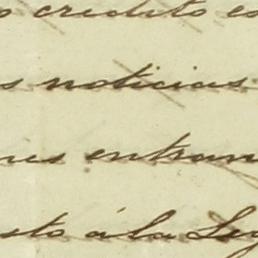 credito es
s noticias
nes entran
sto á la Leg